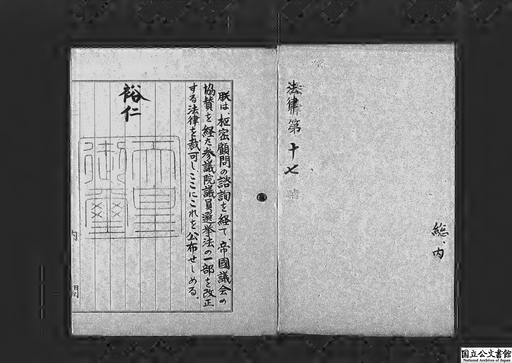 法律第十七號
総、内
朕は、枢密顧問の諮詢を経て、帝國議会の
協賛を経た参議院議員選挙法の一部を改正
する法律を裁可し、ここにこれを公布せしめる。
裕仁
天皇
御璽
内
閣
国立公文書館
National Archives of Japan